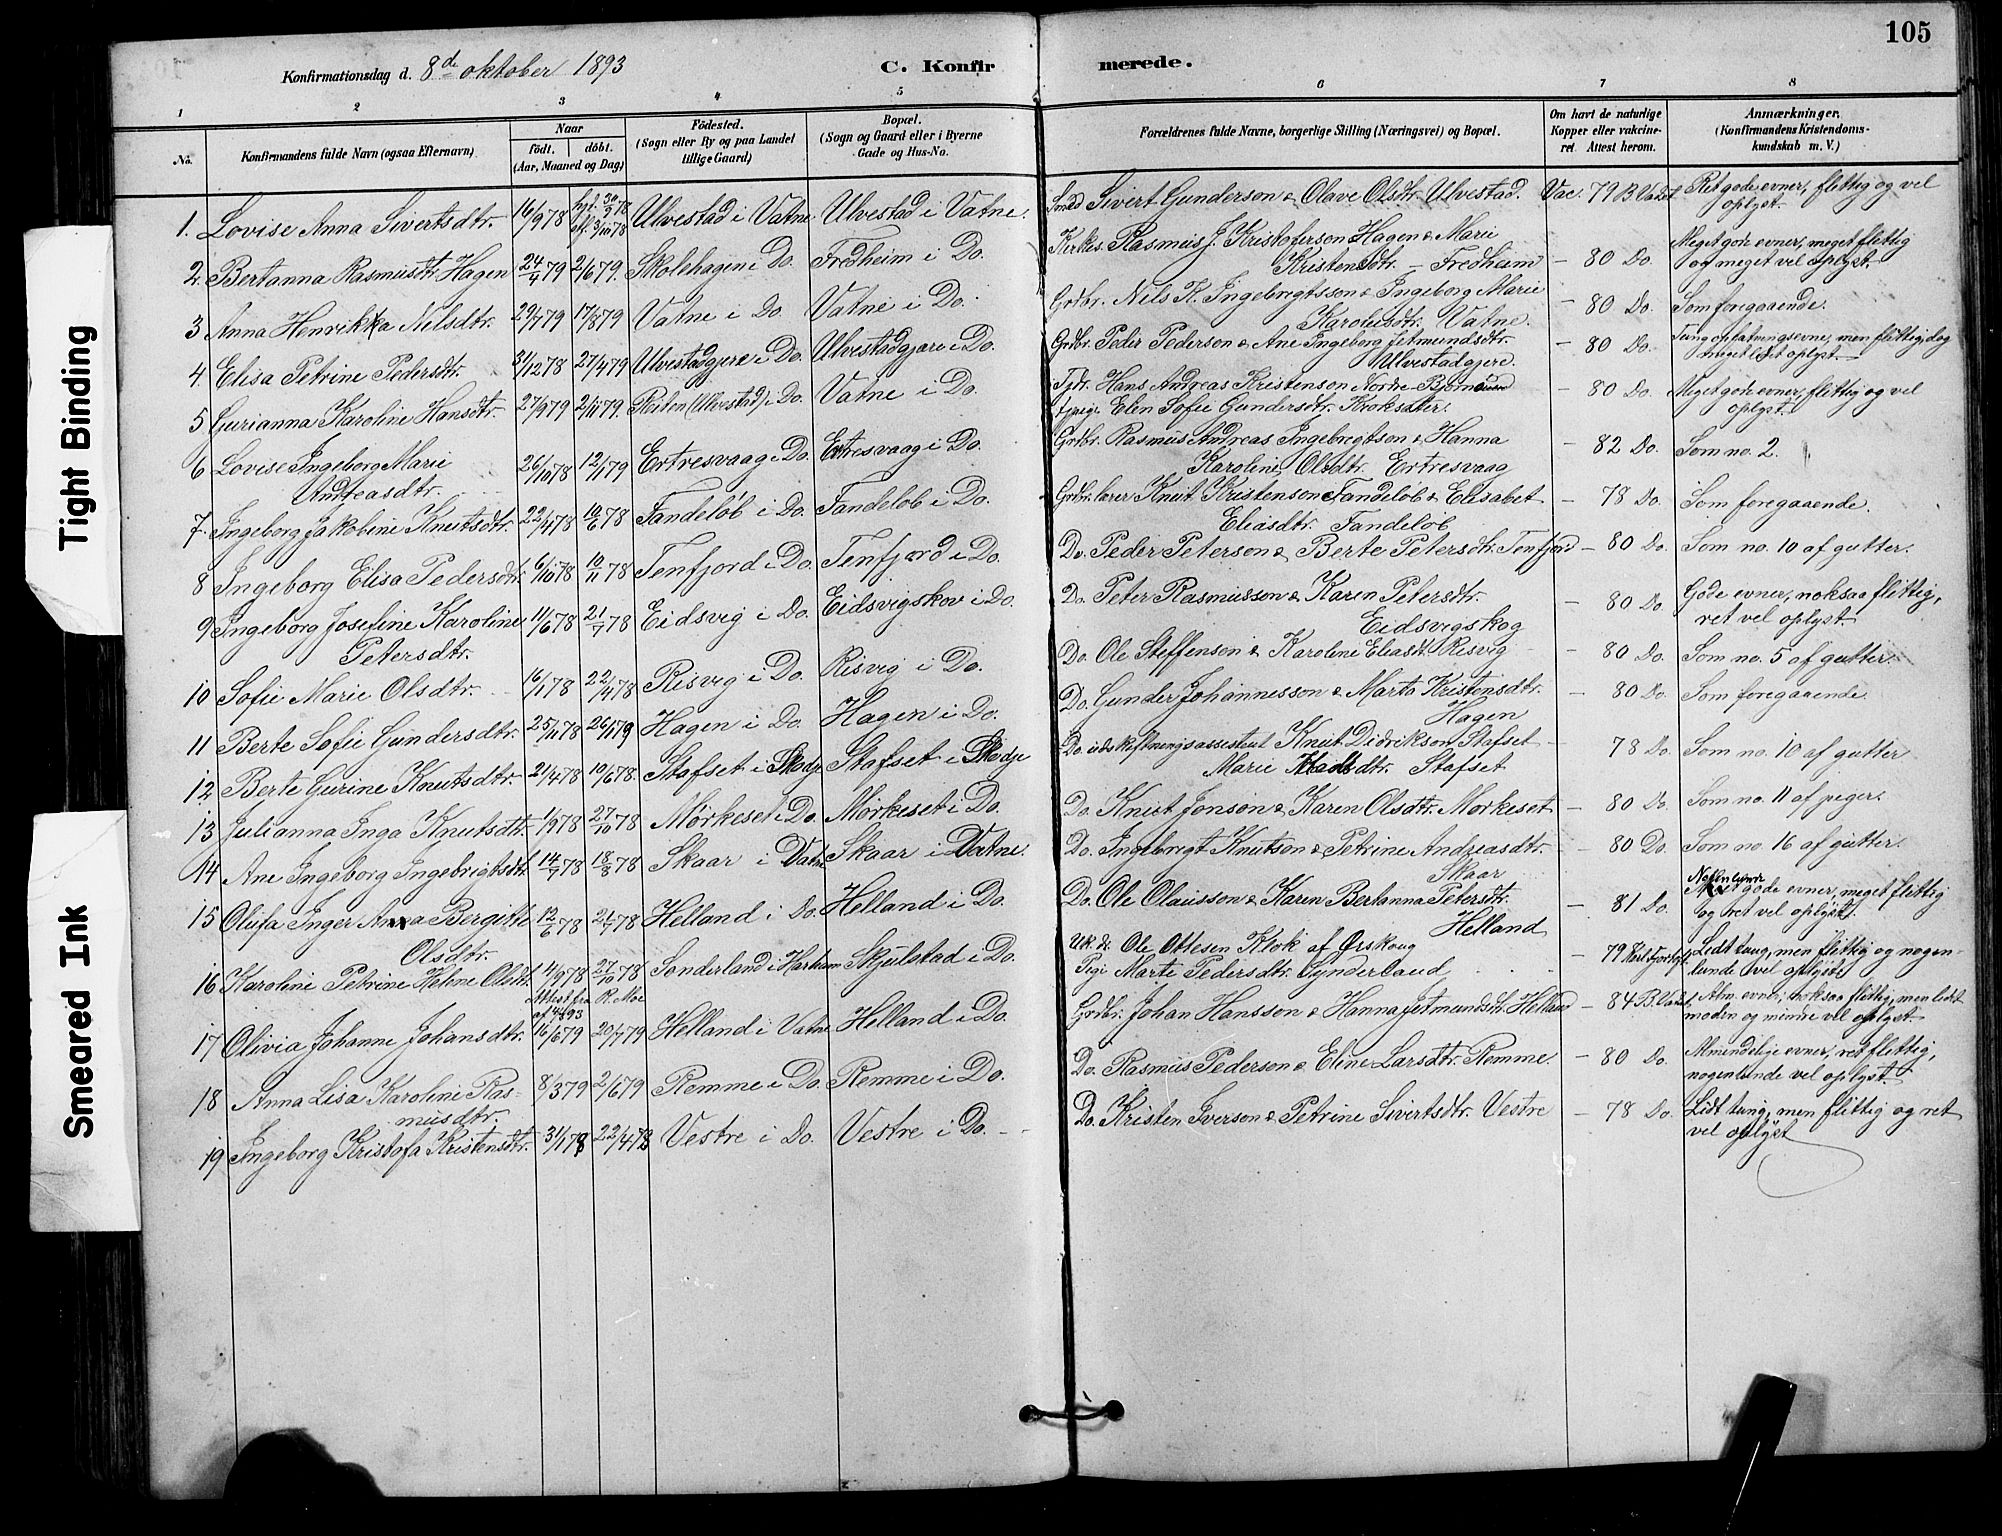 105
Konfirmationsdag d. 8de oktober 1893
C. Konfirmerede.
1 2 3 4 5 6 7 8
No.
Konfirmandens fulde Navn (ogsaa Efternavn)
Naar
födt. döbt.
(Aar, Maaned og Dag)
Födested.
(Sogn eller By og paa Landet
tillige Gaard)
Bopæl.
(Sogn og Gaard eller i Byerne
Gade og Hus-No.
Forældrenes fulde Navne, borgerlige Stilling (Næringsvei) og Bopæl.
Om havt de naturlige
Kopper eller vakcine-
ret. Attest herom.
Anmærkninger.
(Konfirmandens Kristendoms-
kundskab m. V.)
1. Lovise Anna Sivertsdtr. 16/9 78 3/11 78 Ulvestad i Vatne Ulvestad i Vatne. Smed Sivert Gunderson & Olave Olsdtr. Ulvestad. Vac. 79 Ret gode evner, flittig og vel
oplyst.
2. Bertanna Rasmusdtr. Hagen 24/4 79 2/6 79. Skolehagen i Do. Fredheim i Do. Kirkes. Rasmus J. Kristoferson Hagen & Marie
Kristensdtr. – Fredheim – 80 Do. Meget gode evner, meget flittig
og meget vel oplyst.
3 Anna Henrikka Nelsdtr. 29/7 79 17/8 79 Vatne i Do. Vatne i Do. Grdbr. Nils K. Ingebrigtsson & Ingeborg Marie
Karolusdtr. Vatne. – 80 Do. Som foregaaende.
4. Elisa Petrine Pedersdtr. 31/12 78 27/4 79 Ulvestadgjere i Do. Ulvestadgjære i Do. Grdbr. Peder Pederson & Ane Ingeborg Jetmundsdtr.
Ulvestadgjere. – 80 Do. Tung opfatningsevne, men flittig, dog
meget lidt oplyst.
5. Gurianna Karoline Hansdtr. 27/9 79 2/11 79 Reiten (Ulvestad) i Do. Vatne i Do. Hans Andreas Kristenson Nordre-
Elen Sofie Gundersdtr. Kroksæter. – 80 Do. Meget gode evner, flittig og vel
oplyst.
6 Lovise Ingeborg Marie
Andreasdtr. 26/10 78 12/1 79 Ertresvaag i Do. Ertresvaag i Do. Grdbr. Rasmus Andreas Ingebregtson & Hanna
Karoline Olsdtr. Ertresvaag – 82 Do. Som no. 2.
7. Ingeborg Jakobine Knutsdtr. 22/4 78 10/6 78 Tandelöb i Do. Tandelöb i Do. Grdbr. Knut Kristenson Tandelöb & Elisabet
Eliasdtr. Tandelöb – 78 Do. Som foregaaende.
8 Ingeborg Elisa Pedersdtr. 6/10 78 10/11 78 Tenfjord i Do. Tenfjord i Do. Do. Peder Peterson & Berte Petersdtr. Tenfjord – 80 Do. Som no. 10 af gutter.
9 Ingeborg Josefine Karoline
Petersdtr. 11/6 78 21/7 78 Eidsvig i Do. Eidsvigskov i Do. Do. Peter Rasmusson & Karen Petersdtr.
Eidsvigskog – 80 Do. Gode evner, noksaa flittig,
ret vel oplyst.
10 Sofie Marie Olsdtr. 16/1 78 22/4 78 Risvig i Do. Risvig i Do. Do. Ole Steffenson & Karoline Eliasdt. Risvig – 80 Do. Som no. 5 af gutter.
11 Berte Sofie Gundersdtr. 25/11 78 26/1 79 Hagen i Do. Hagen i Do. Do. Gunder Johannesson & Marta Kristensdtr.
Hagen – 80 Do. Som foregaaende.
12 Berte Gurine Knutsdtr. 21/4 78 10/6 78. Stafset i Skodje Stafset i Skodje Do. udskiftningsassistent Knut Didrikson Stafset
Marie Stafset – 78 Do. Som no. 10 af gutter
13 Julianna Inga Knutsdtr. 1/9 78 27/10 78 Mörkeset i Do. Mörkeset i Do. Do. Knut Jonson & Karen Olsdtr. Mörkeset – 80 Do. Som no. 11 af piger.
14 Ane Ingeborg Ingebrigtsdtr. 14/7 78 18/8 78 Skaar i Vatne Skaar i Vatne. Do. Ingebrigt Knutson & Petrine Andreasdtr.
Skaar – 80 Do. Som no. 16 af gutter.
15 Olufa Inger Anna Bergitte
Olsdtr. 12/6 78 21/7 78 Helland i Do. Helland i Do. Do. Ole Olausson & Karen Bertanna Petersdtr.
Helland – 81 Do. Nogenlunde gode evner, meget flittig
og ret vel oplyst.
16 Karoline Petrine Helene Olsdt. 4/9 78 27/10 78 Sonderland i Harham Skjelstad i Do. Ole Ottesen Klok af Ørskoug
Pige Marte Pedersdtr. Synderland 79 Lidt tung, men flittig og nogen-
lunde vel oplyst.
Attest fra R. Moe
af 4/9 93
17 Olivia Johanne Johansdtr. 16/6 79 20/7 79 Helland i Vatne Helland i Do. Grdbr. Johan Hansson & Hanna Jetmundsdtr. Helland – 84 Alm. evner, noksaa flittig, men lidt
moden og mindre vel oplyst.
18 Anna Lisa Karoline Ras-
musdtr. 8/3 79 2/6 79 Remme i Do. Remme i Do. Do. Rasmus Pederson & Eline Larsdtr. Remme. – 80 Do. Almindelige evner, ret flittig,
nogenlunde vel oplyst.
19 Ingeborg Kristofa Kristensdtr. 31/1 78 22/4 78 Vestre i Do. Vestre i Do. Do. Kristen Iverson & Petrine Sivertsdtr. Vestre – 78 Do. Lidt tung, men flittig og ret
vel oplyst
Tight Binding
Smeared Ink